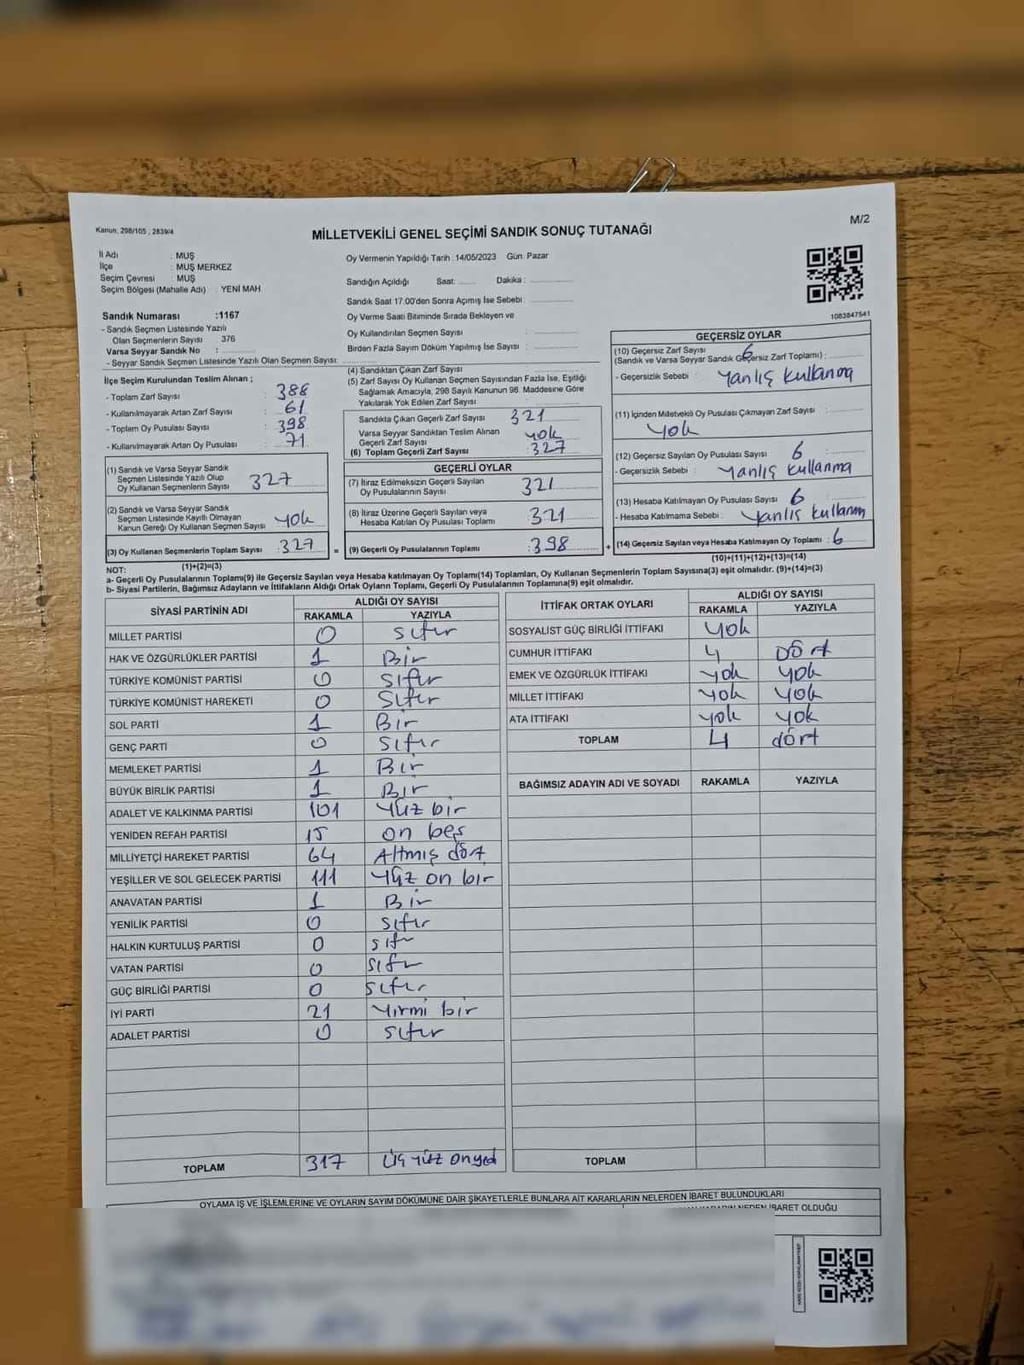 Kanun: 298/105 ; 2839/4
M/2
MİLLETVEKİLİ GENEL SEÇİMİ SANDIK SONUÇ TUTANAĞI
İl Adı : MUŞ
İlçe : MUŞ MERKEZ
Seçim Çevresi : MUŞ
Seçim Bölgesi (Mahalle Adı) : YENİ MAH
Oy Vermenin Yapıldığı Tarih :14/05/2023 Gün: Pazar
Sandığın Açıldığı Saat: Dakika :
Sandık Saat 17:00'den Sonra Açımış İse Sebebi :
Oy Verme Saati Bitiminde Sırada Bekleyen ve
Oy Kullandırılan Seçmen Sayısı :
Birden Fazla Sayım Döküm Yapılmış İse Sayısı :
1083847541
Sandık Numarası :1167
- Sandık Seçmen Listesinde Yazılı
Olan Seçmenlerin Sayısı 376
Varsa Seyyar Sandık No :
- Seyyar Sandık Seçmen Listesinde Yazılı Olan Seçmen Sayısı:
İlçe Seçim Kurulundan Teslim Alınan ;
- Toplam Zarf Sayısı : 388
- Kullanılmayarak Artan Zarf Sayısı : 61
- Toplam Oy Pusulası Sayısı : 398
- Kullanılmayarak Artan Oy Pusulası : 71
(1) Sandık ve Varsa Seyyar Sandık
Seçmen Listesinde Yazılı Olup
Oy Kullanan Seçmenlerin Sayısı 327
(2) Sandık ve Varsa Seyyar Sandık
Seçmen Listesinde Kayıtlı Olmayan
Kanun Gereği Oy Kullanan Seçmen Sayısı : yok
(3) Oy Kullanan Seçmenlerin Toplam Sayısı : 327
(1)+(2)=(3)
(4) Sandıktan Çıkan Zarf Sayısı
(5) Zarf Sayısı Oy Kullanan Seçmen Sayısından Fazla İse, Eşitliği
Sağlamak Amacıyla, 298 Sayılı Kanunun 98. Maddesine Göre
Yakılarak Yok Edilen Zarf Sayısı :
Sandıkta Çıkan Geçerli Zarf Sayısı 321
Varsa Seyyar Sandıktan Teslim Alınan
Geçerli Zarf Sayısı yok
(6) Toplam Geçerli Zarf Sayısı : 327
GEÇERLİ OYLAR
(7) İtiraz Edilmeksizin Geçerli Sayılan
Oy Pusulalarının Sayısı : 321
(8) İtiraz Üzerine Geçerli Sayılan veya
Hesaba Katılan Oy Pusulası Toplamı : 321
= (9) Geçerli Oy Pusulalarının Toplamı : 398 +
GEÇERSİZ OYLAR
(10) Geçersiz Zarf Sayısı 6
(Sandık ve Varsa Seyyar Sandık Geçersiz Zarf Toplamı) :
- Geçersizlik Sebebi : Yanlış kullanma
(11) İçinden Milletvekili Oy Pusulası Çıkmayan Zarf Sayısı :
yok
(12) Geçersiz Sayılan Oy Pusulası Sayısı : 6
- Geçersizlik Sebebi : Yanlış kullanma
(13) Hesaba Katılmayan Oy Pusulası Sayısı : 6
- Hesaba Katılmama Sebebi : Yanlış kullanım
(14) Geçersiz Sayılan veya Hesaba Katılmayan Oy Toplamı : 6
(10)+(11)+(12)+(13)=(14)
NOT:
a- Geçerli Oy Pusulalarının Toplamı(9) ile Geçersiz Sayılan veya Hesaba katılmayan Oy Toplamı(14) Toplamları, Oy Kullanan Seçmenlerin Toplam Sayısına(3) eşit olmalıdır. (9)+(14)=(3)
b- Siyasi Partilerin, Bağımsız Adayların ve İttifakların Aldığı Ortak Oyların Toplamı, Geçerli Oy Pusulalarının Toplamına(9) eşit olmalıdır.
SİYASİ PARTİNİN ADI ALDIĞI OY SAYISI
RAKAMLA YAZIYLA
MİLLET PARTİSİ 0 sıfır
HAK VE ÖZGÜRLÜKLER PARTİSİ 1 Bir
TÜRKİYE KOMÜNİST PARTİSİ 0 sıfır
TÜRKİYE KOMÜNİST HAREKETİ 0 sıfır
SOL PARTİ 1 Bir
GENÇ PARTİ 0 sıfır
MEMLEKET PARTİSİ 1 Bir
BÜYÜK BİRLİK PARTİSİ 1 Bir
ADALET VE KALKINMA PARTİSİ 101 Yüz bir
YENİDEN REFAH PARTİSİ 15 on beş
MİLLİYETÇİ HAREKET PARTİSİ 64 Altmış dört
YEŞİLLER VE SOL GELECEK PARTİSİ 111 Yüz on bir
ANAVATAN PARTİSİ 1 Bir
YENİLİK PARTİSİ 0 sıfır
HALKIN KURTULUŞ PARTİSİ 0 sıfır
VATAN PARTİSİ 0 sıfır
GÜÇ BİRLİĞİ PARTİSİ 0 sıfır
İYİ PARTİ 21 Yirmi bir
ADALET PARTİSİ 0 sıfır
TOPLAM 317 Üç yüz onyedi
İTTİFAK ORTAK OYLARI ALDIĞI OY SAYISI
RAKAMLA YAZIYLA
SOSYALİST GÜÇ BİRLİĞİ İTTİFAKI yok
CUMHUR İTTİFAKI 4 Dört
EMEK VE ÖZGÜRLÜK İTTİFAKI yok yok
MİLLET İTTİFAKI yok yok
ATA İTTİFAKI yok yok
TOPLAM 4 dört
BAĞIMSIZ ADAYIN ADI VE SOYADI RAKAMLA YAZIYLA
TOPLAM
OYLAMA İŞ VE İŞLEMLERİNE VE OYLARIN SAYIM DÖKÜMÜNE DAİR ŞİKAYETLERLE BUNLARA AİT KARARLARIN NELERDEN İBARET BULUNDUKLARI
NEDEN İBARET OLDUĞU